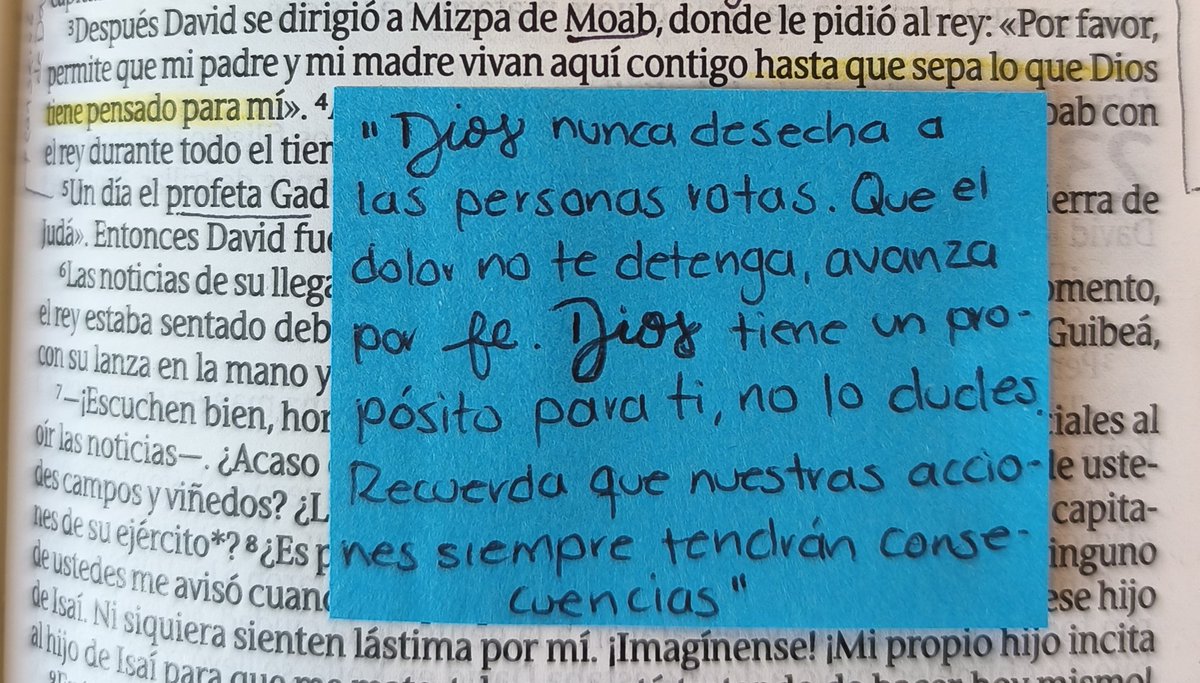 ³Después David se dirigió a Mizpa de Moab, donde le pidió al rey: «Por favor,
permite que mi padre y mi madre vivan aquí contigo hasta que sepa lo que Dios
tiene pensado para mí». ⁴
oab con
el rey durante todo el tier
⁵Un día el profeta Gad
ierra de
Judá». Entonces David fue
⁶Las noticias de su llega
omento,
el rey estaba sentado deb
Guibeá,
con su lanza en la mano y
⁷—¡Escuchen bien, hor
iales al
oír las noticias—. ¿Acaso
le uste-
des campos y viñedos? ¿L
capita-
nes de su ejército*? ⁸¿Es p
inguno
de ustedes me avisó cuand
ese hijo
de Isaí. Ni siquiera sienten lástima por mí. ¡Imagínense! ¡Mi propio hijo incita
al hijo de Isaí para que me
"Dios nunca desecha a
las personas rotas. Que el
dolor no te detenga, avanza
por fe. Dios tiene un pro-
pósito para ti, no lo dudes.
Recuerda que nuestras accio-
nes siempre tendrán conse-
cuencias"